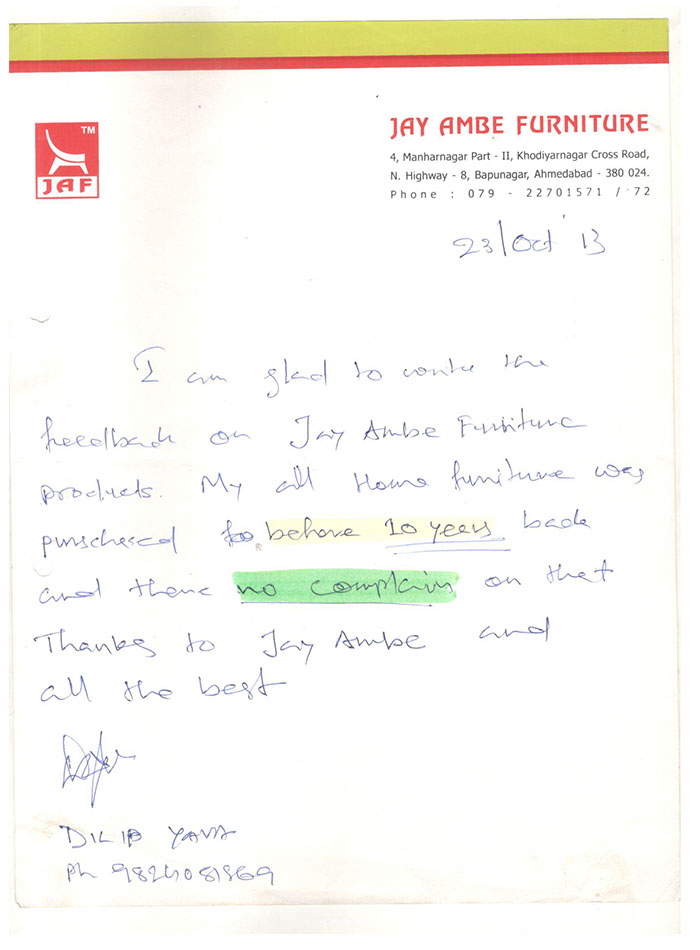 TM
JAF
JAY AMBE FURNITURE
4, Manharnagar Part - II, Khodiyarnagar Cross Road,
N. Highway - 8, Bapunagar, Ahmedabad - 380 024.
Phone : 079 - 22701571 / 72
23/Oct '13
I am glad to write the
feedback on Jay Ambe Furniture
products. My all Home furniture was
purschesed before 10 years back
and there no complain on that
Thanks to Jay Ambe and
all the best
DILIP
Ph